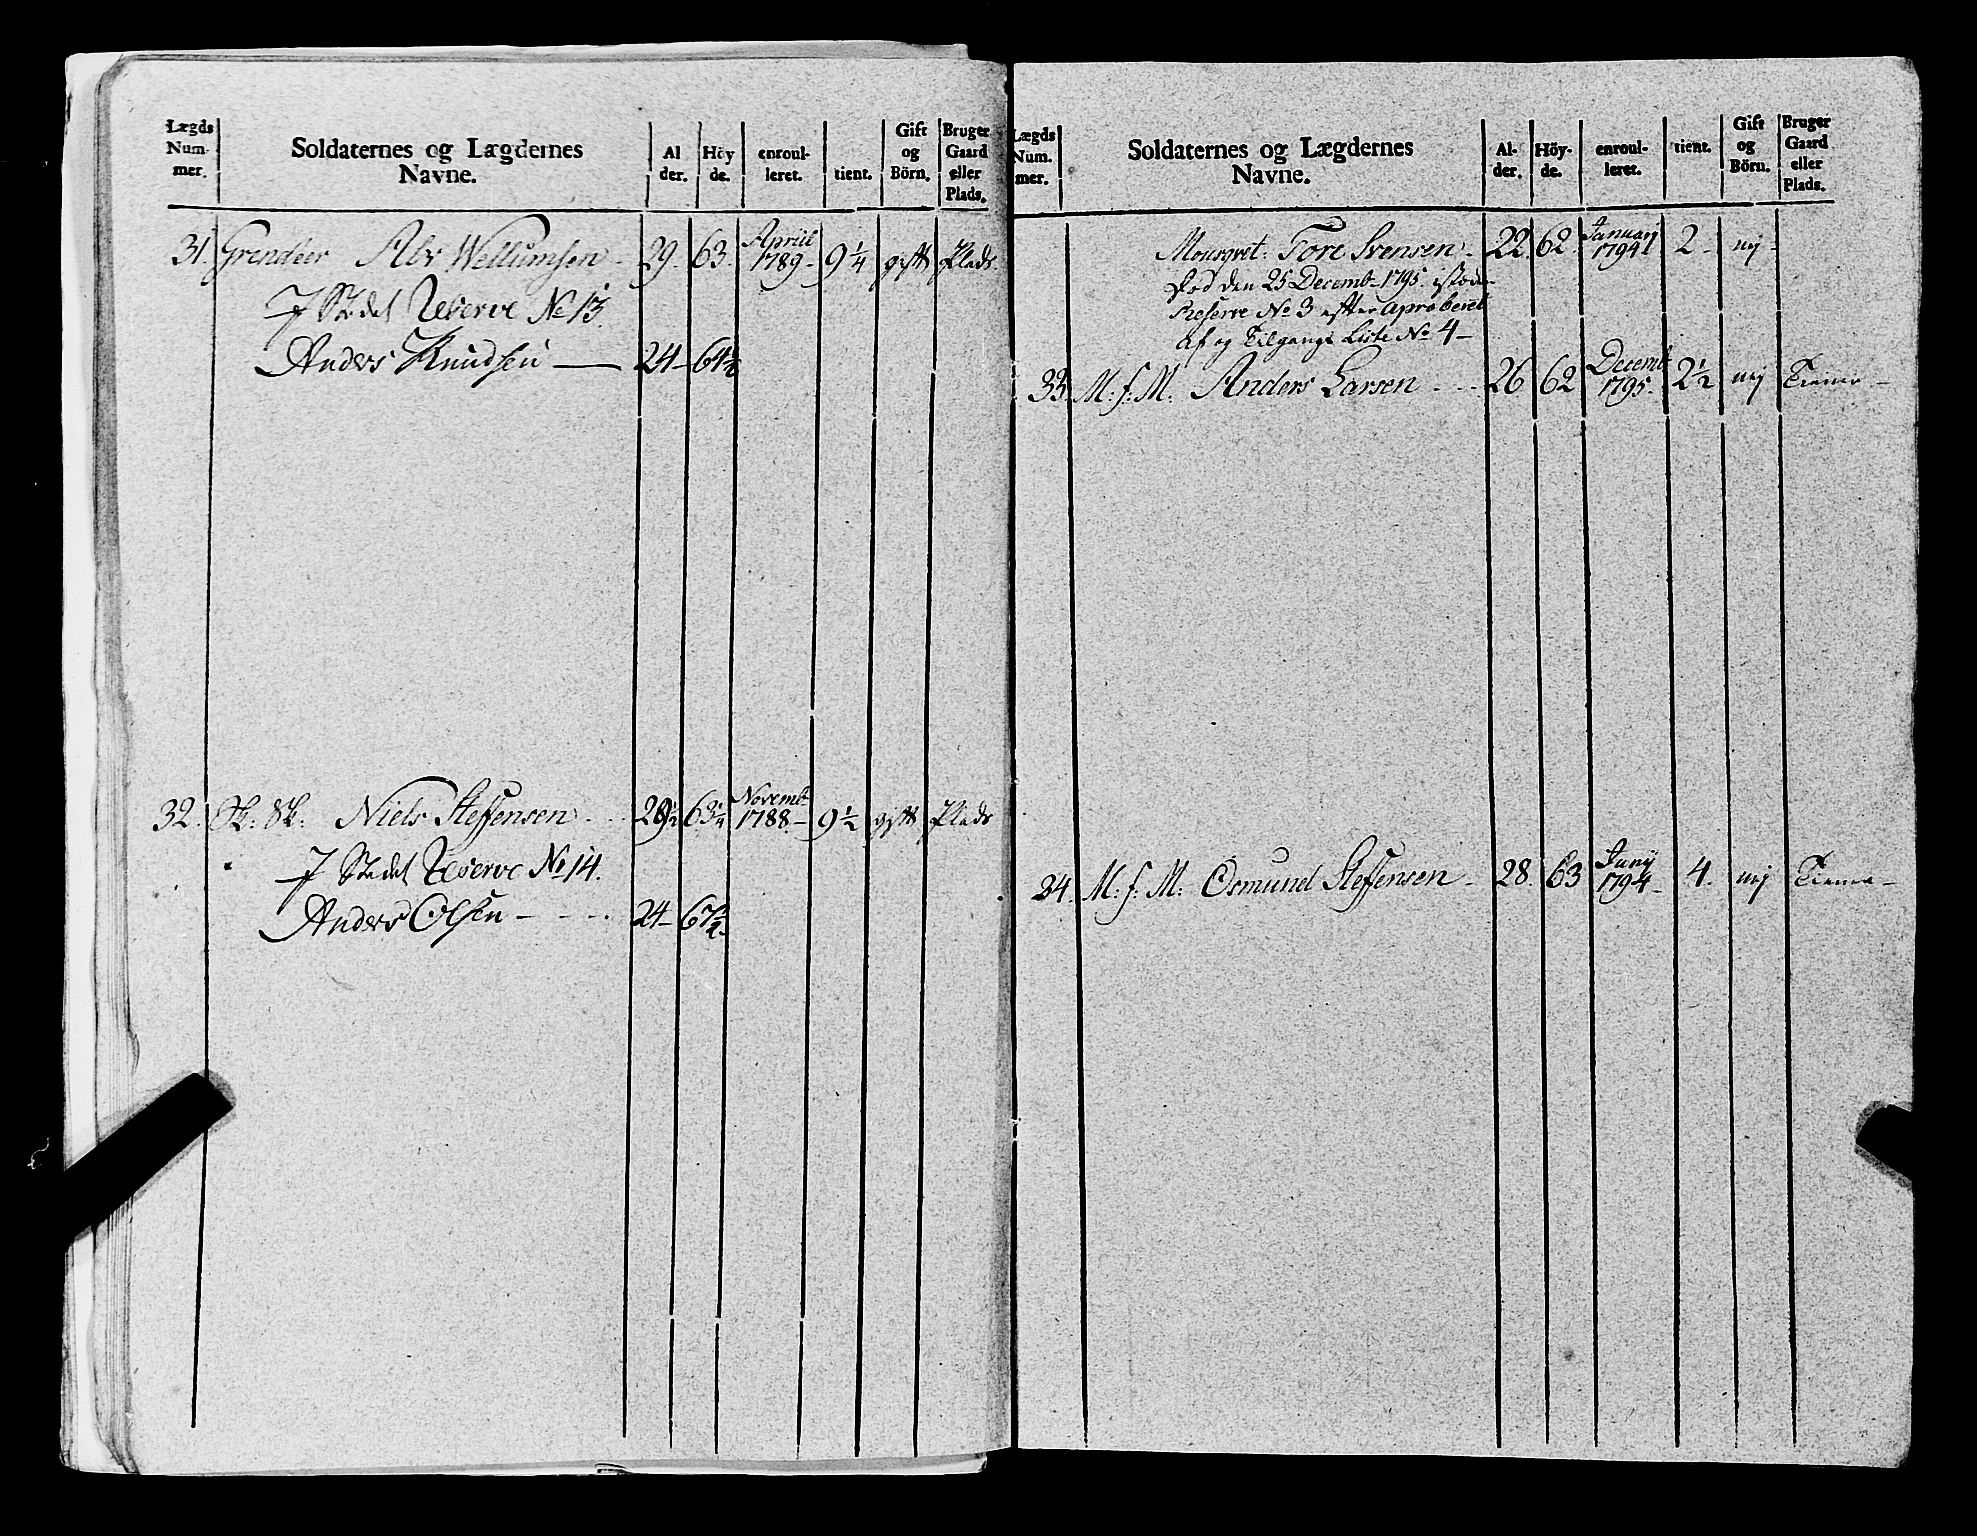 Lægds Num- mer. Soldaternes og Lægdernes Navne. Al der. Höy de. enroul- leret. tient. Gift og Börn. Bruger Gaard eller Plads.
31. Grendeer Alv Wellumsen - 29. 63. Apriil 1789 - 9 1/4 gift Plads
I Stedet Reserve No 13.
Anders Knudsen — 24 - 64 1/2
32. Niels Steffensen 28 1/2 63 1/4 Novemb. 1788. - 9 1/2 gift Plads
I Stedet Reserve No 14.
Anders Olsen - 24 -
Lægds Num. mer. Soldaternes og Lægdernes Navne. Al- der. Höy- de. enroul- leret. tient. Gift og Börn. Bruger Gaard eller Plads.
Mousqvet: Tore Svensen - 22. 62. Januarj 1794 2 - nej -
Død den 25 Decemb - 1795. istæd
Reserve No 3 efter aproberet
Af og Tilgangs Liste No 4 -
33. M: f: M: Anders Larsen - 26 62 Decemb 1795. 2 1/2 nej Tiener -
34. M: f: M: Osmund Steffensen - 28. 63 Junij 1794 - 4. nej Tiener -